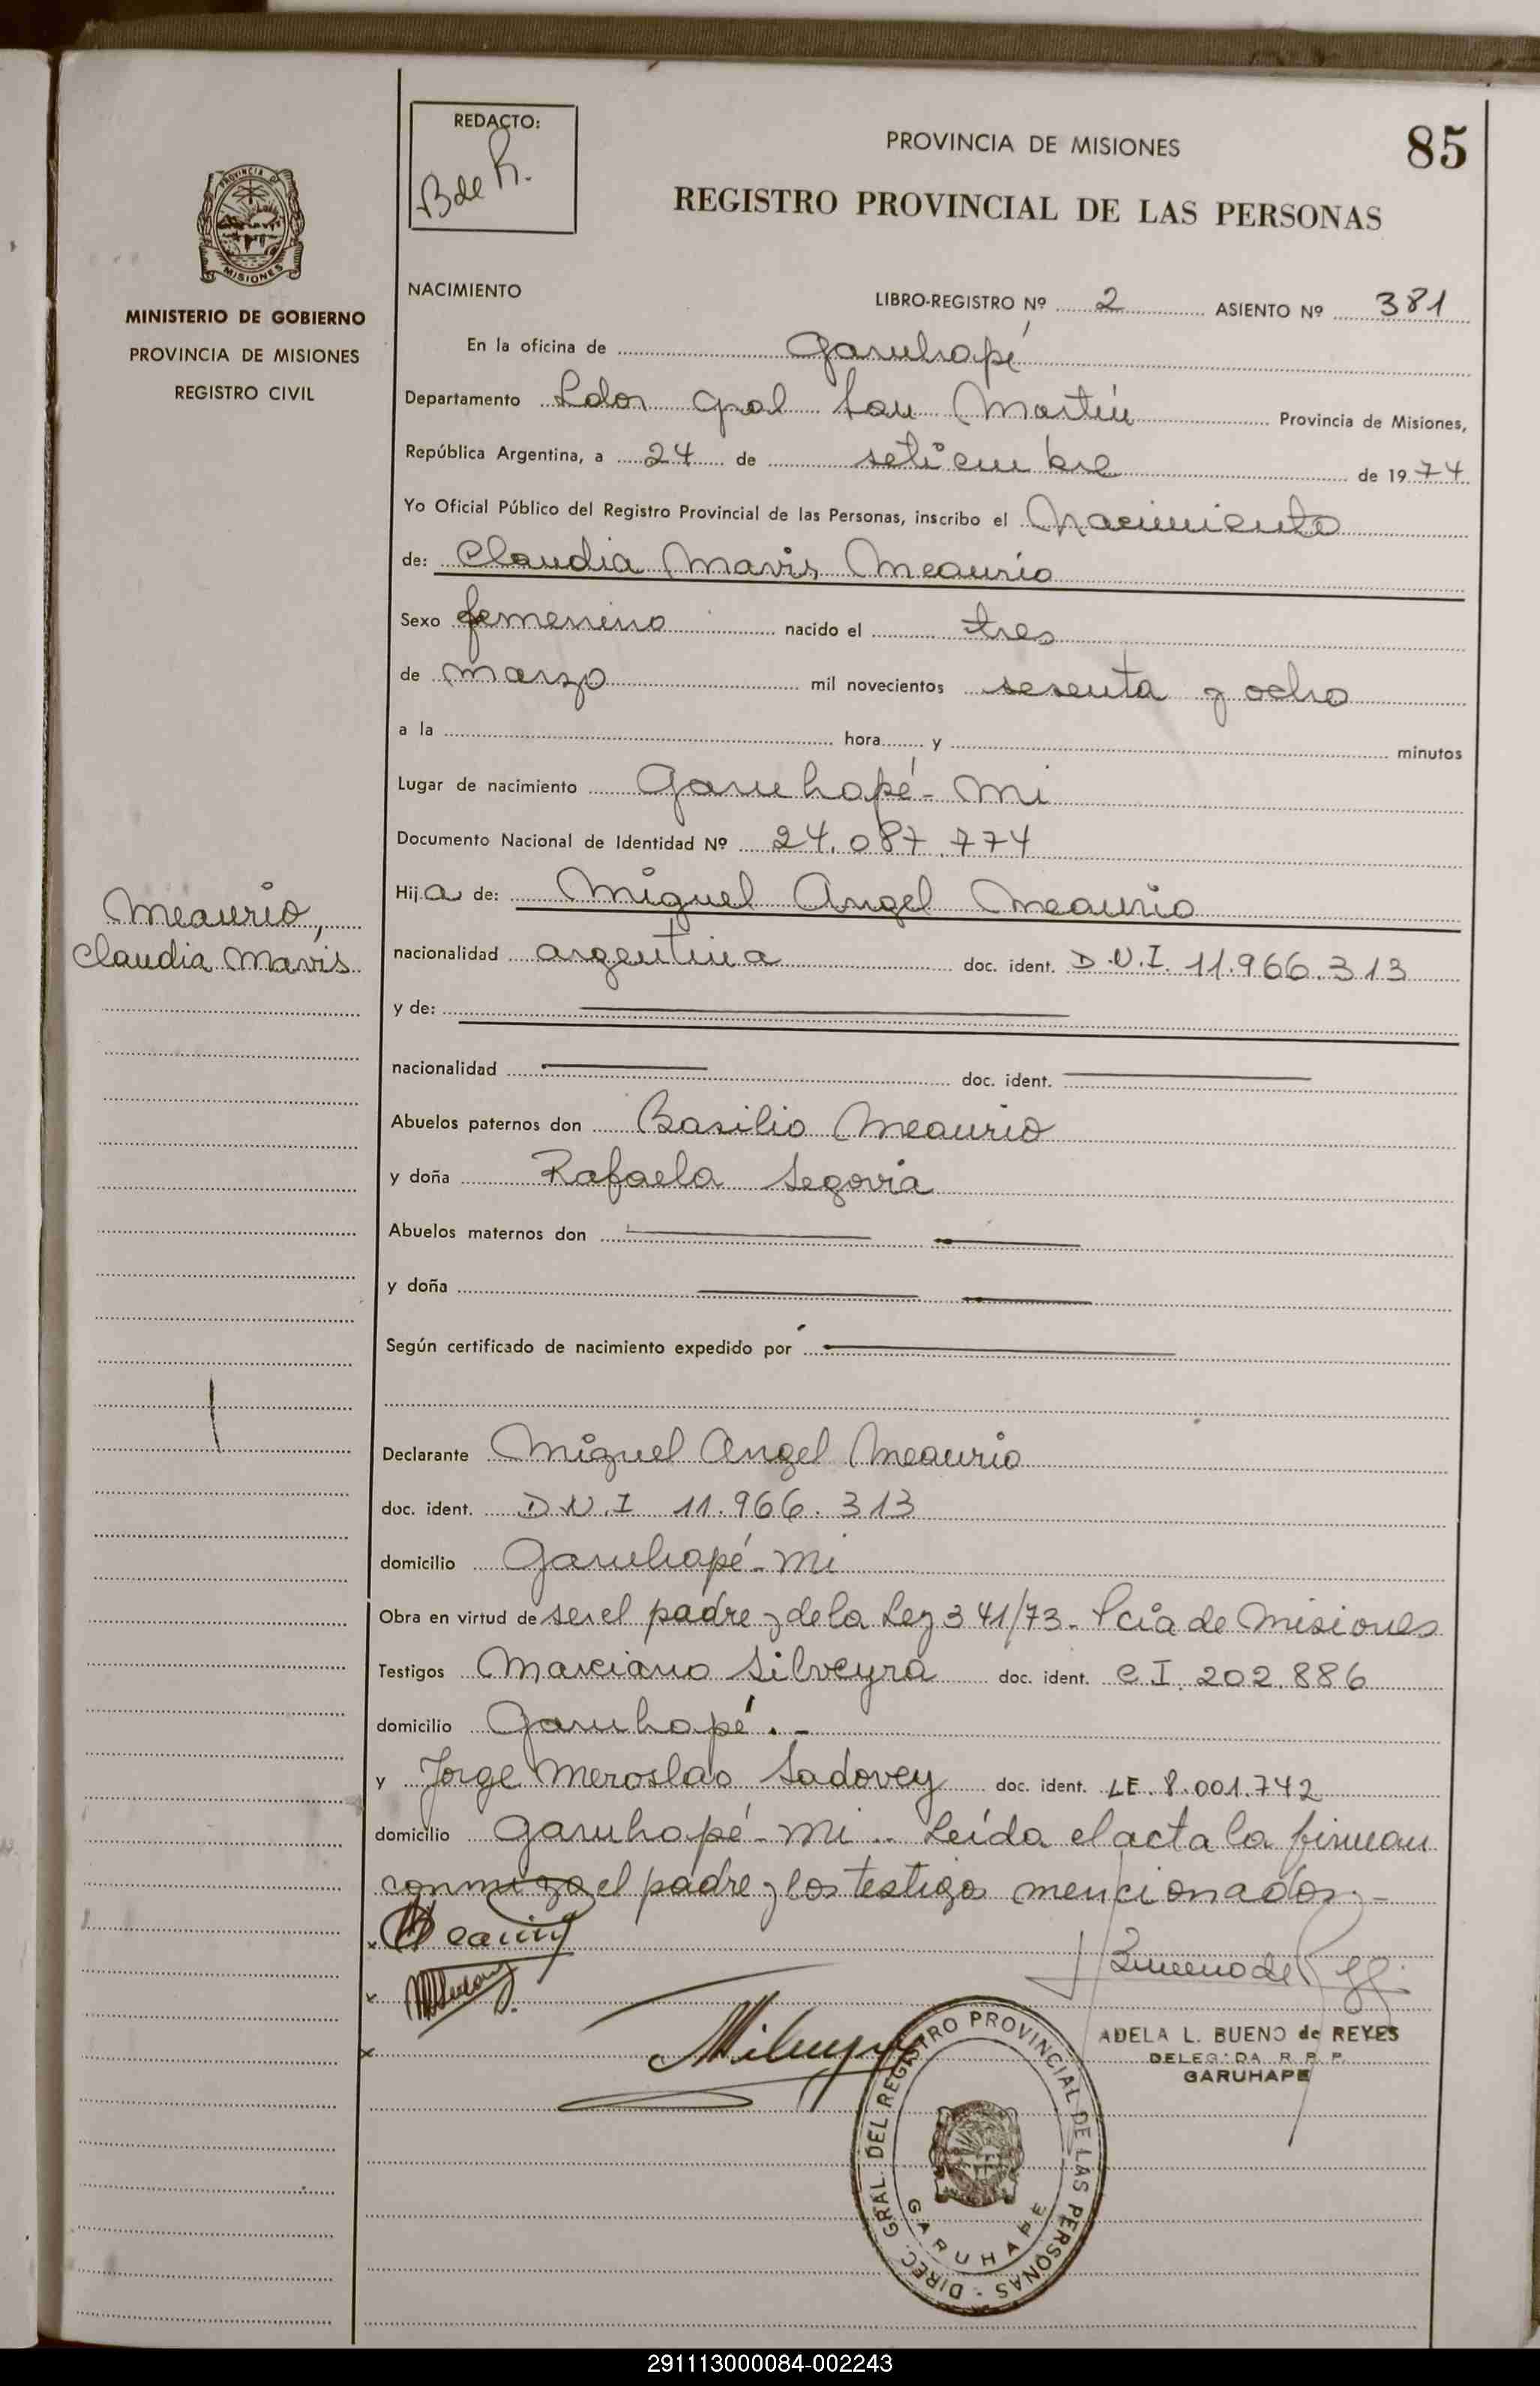 REDACTO:
B de R.
PROVINCIA DE MISIONES
85
REGISTRO PROVINCIAL DE LAS PERSONAS
PROVINCIA DE
MISIONES
MINISTERIO DE GOBIERNO
PROVINCIA DE MISIONES
REGISTRO CIVIL
NACIMIENTO LIBRO-REGISTRO Nº 2 ASIENTO Nº 381
En la oficina de Garuhapé
Departamento Ldor Gral San Martín Provincia de Misiones,
República Argentina, a 24 de setiembre de 1974
Yo Oficial Público del Registro Provincial de las Personas, inscribo el Nacimiento
de: Claudia Mavis Meaurio
Sexo femenino nacido el tres
de marzo mil novecientos sesenta y ocho
a la hora y minutos
Lugar de nacimiento Garuhapé - Mi
Documento Nacional de Identidad Nº 24.087.774
Hija de: Miguel Angel Meaurio
Meaurio,
Claudia Mavis
nacionalidad argentina doc. ident. D.N.I. 11.966.313
y de:
nacionalidad doc. ident.
Abuelos paternos don Basilio Meaurio
y doña Rafaela Segovia
Abuelos maternos don
y doña
Según certificado de nacimiento expedido por
Declarante Miguel Angel Meaurio
doc. ident. D.N.I 11.966.313
domicilio Garuhapé - Mi
Obra en virtud de ser el padre y de la Ley 341/73 - Pcia de Misiones
Testigos Marciano Silveyra doc. ident. C.I. 202.886
domicilio Garuhapé . -
y Jorge Meroslao Sadovey doc. ident. LE. 8.001.742
domicilio Garuhapé - Mi .. Leída el acta la firman
conmigo el padre y los testigos mencionados. -
ADELA L. BUENO de REYES
DELEGADA R. P. P.
GARUHAPE
DIREC. GRAL. DEL REGISTRO PROVINCIAL DE LAS PERSONAS -
GARUHAPE
291113000084-002243